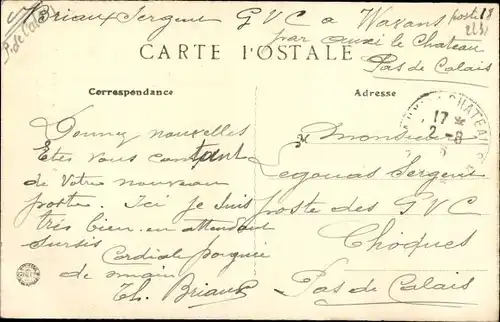 Briaux Sergent G V C a Wavans poste 18
par auxi le Chateau
Pas de Calais
P. de Calais
CARTE POSTALE
Correspondance
Adresse
CHATEAU
17 *
2-8
Donnez nouvelles
Etes vous content
de votre nouveau
poste. Ici je suis
très bien en attendant
sursis
Cordiale poignée
de main
Th. Briaux
Monsieur
Legouas Sergent
poste des G V C
Choques
Pas de Calais